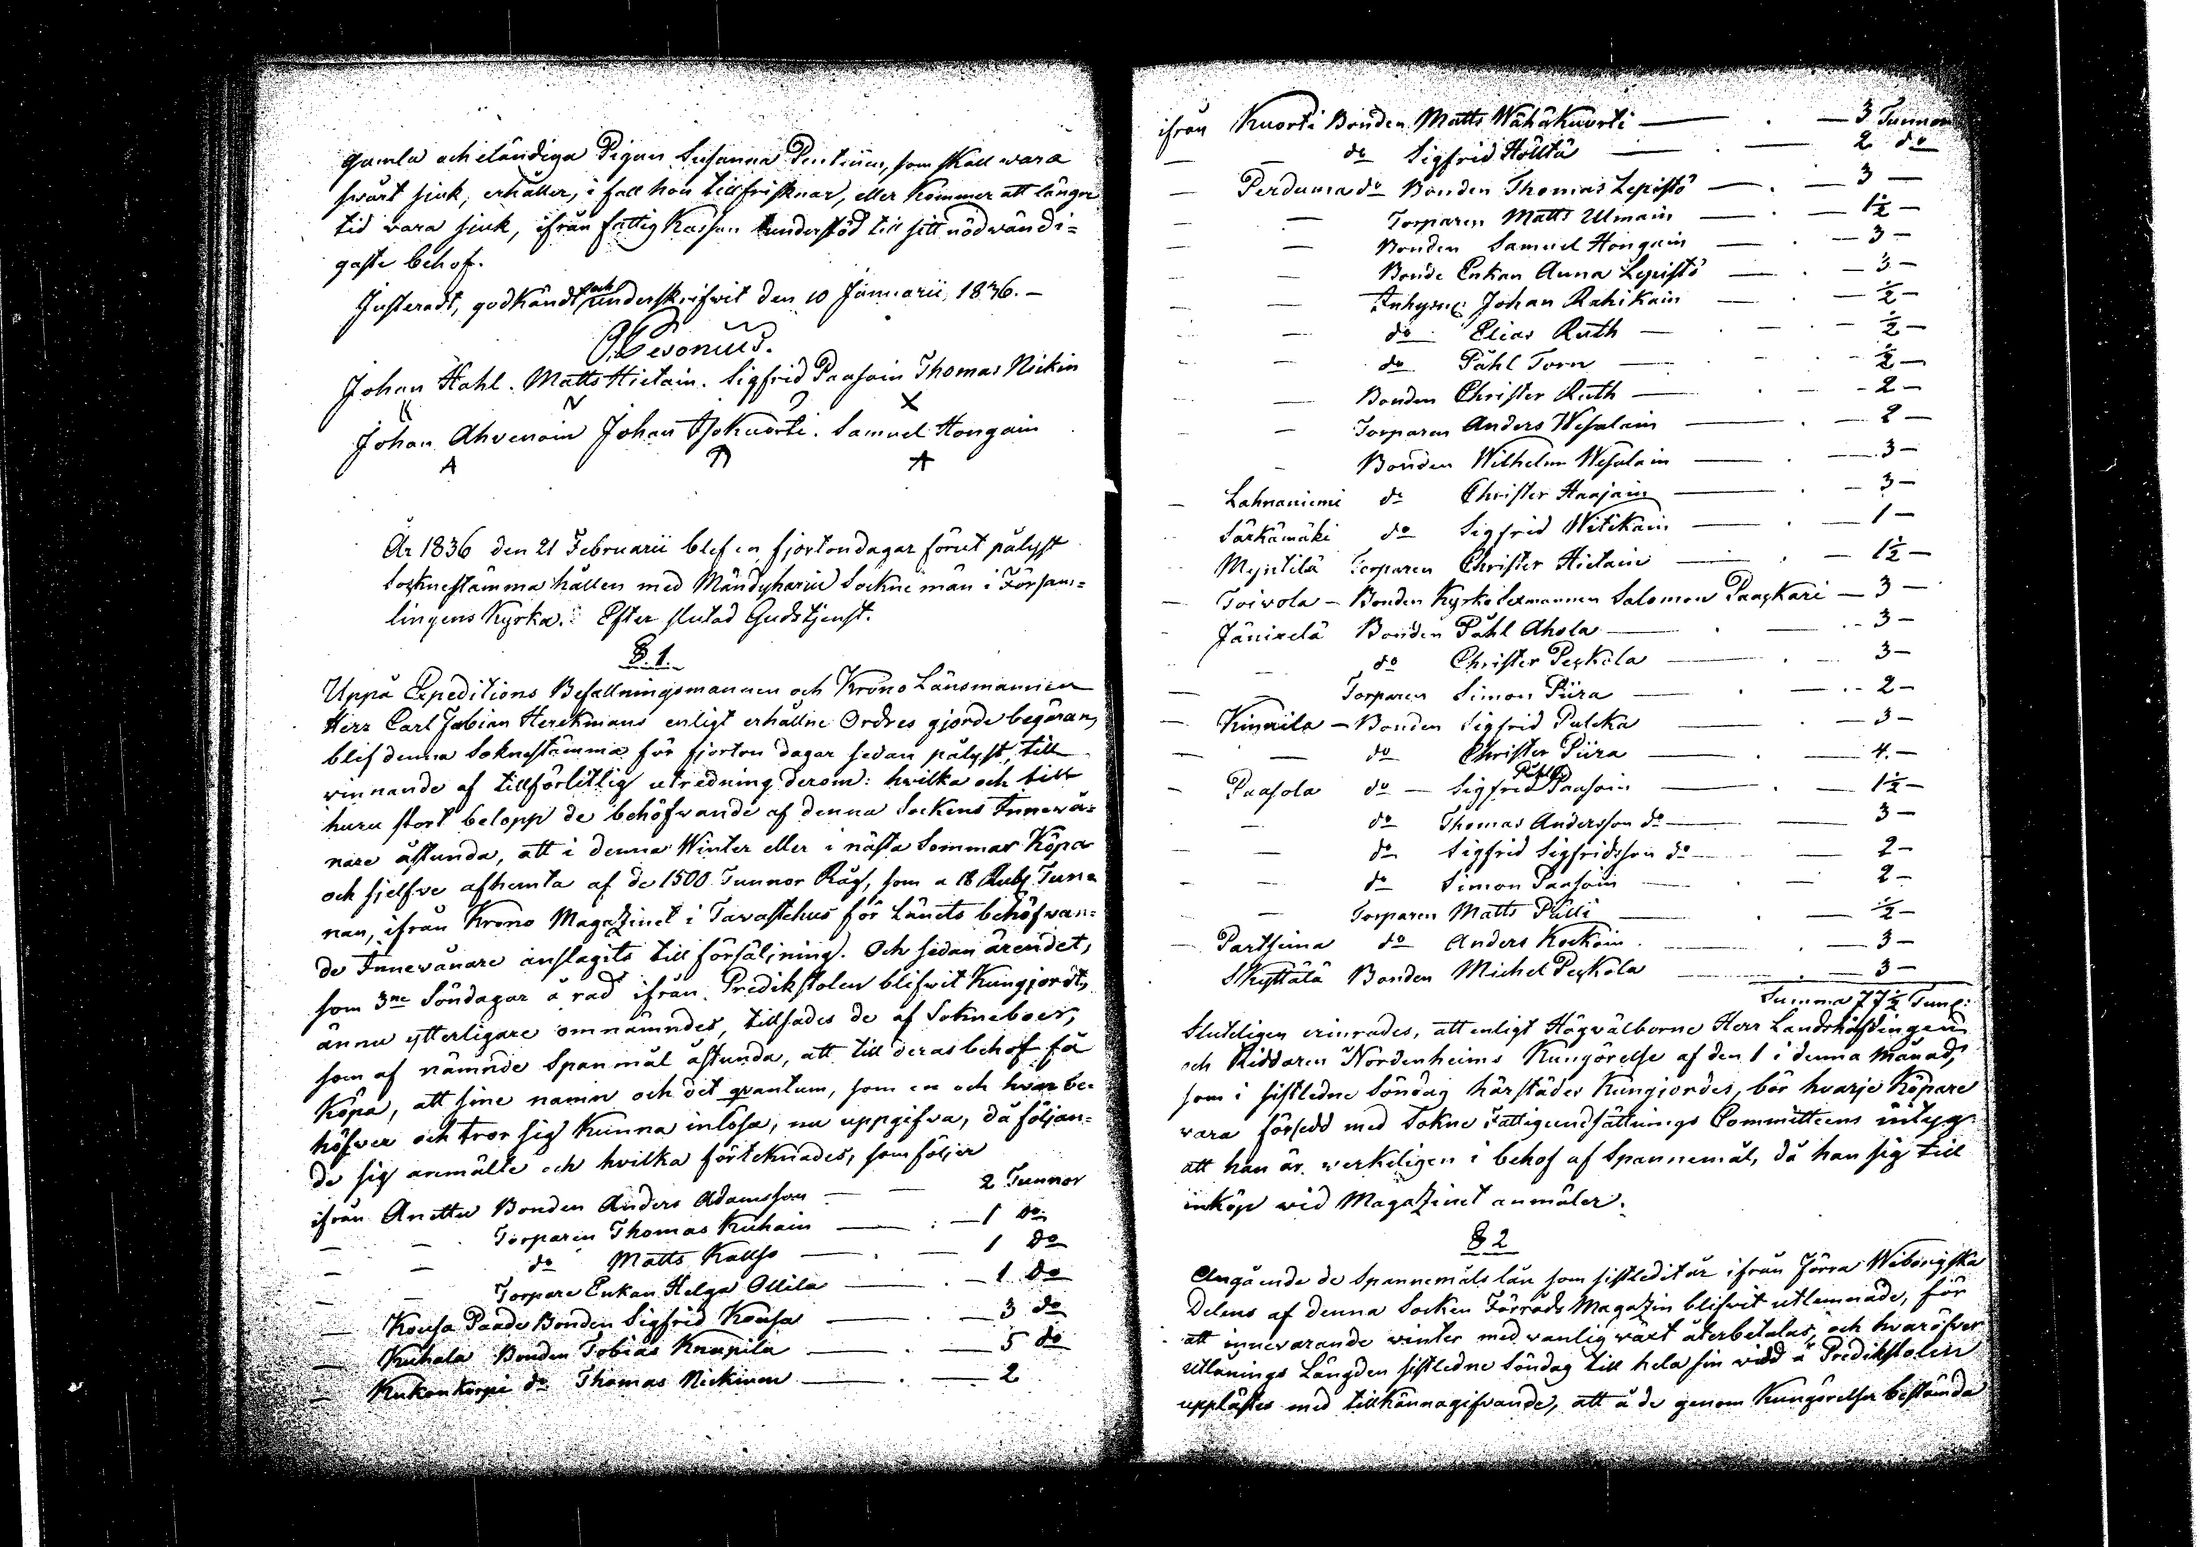 gamla och eländiga Pigan Susanna Pentiinen, som skall wara
swårt sjuk, erhåller, i fall hon tillfrisknar, eller kommer att längre
tid vara sjuk, ifrån fattig Kassan understöd till sitt nödwändi=
gaste behof.
Justeradt, godkändt och underskrifwit den 10 Januarii 1836. –
Johan Hahl. Matts Hietain. Sigfrid Paasoin Thomas Nickin
Johan Ahvenain Johan Isokuorti. Samuel Hongain
År 1836 den 21 Februarii blef en fjorton dagar förut pålyst
Socknestämma hållen med Mändyharju Sockne män i Försam=
lingens Kyrka. Efter slutad Gudstjenst.
§. 1.
Uppå Expeditions Befallningsmannen och Krono Länsmannen
Herr Carl Fabian Herckmans enligt erhållne Ordres gjorde begäran,
blef denna Soknestämma för fjorton dagar sedan pålyst, till
winnande af tillförlitlig utredning derom: hvilka och till
huru stort belopp de behöfwande af denna Sockens Innewå=
nare åstunda, att i denna Winter eller i nästa Sommar Köpa
och sjelfve afhemta af de 1500 Tunnor Råg, som a 18 Rub. Tun=
nan, ifrån Krono Magazinet i Tavastehus för Länets behöfwan=
de Innevånare anslagits till försäljning. Och sedan ärendet,
som 3ne Söndagar å rad ifrån Predikstolen blifwit Kungjordt,
ännu ytterligare omnämndes, tillsades de af Sokneboer,
som af nämnde Spanmål åstunda, att till deras behof få
Köpa, att sine namn och det quantum, som en och hvar be=
höfwer och tror sig kunna inlösa, nu uppgifva, då följan=
de sig anmälte och hvilka förteknades, som följer
ifrån Anettu Bonden Anders Adamsson — — 2 Tunnor
— — Torparen Thomas Kuhain — . — 1 do
— — do Matts Kallso — . — 1 do
— — Torpare Enkan Helga Ollila — . — 1 do
— Kousa Paade Bonden Sigfrid Kousa — . — 3 do
— Kuhala Bonden Tobias Knapila — . — 5 do
— Kukonkorpi do Thomas Nickinen — . — 2
ifrån Kuorti Bonden Matts Wähäkuorti — . — 3 Tunnor
— — do Sigfrid Hölttä — . — 2 do
— Perduma do Bonden Thomas Lepistö — . — 3 —
— — Torparen Matts Ulmain — . — 1½ —
— — Bonden Samuel Hongain — . — 3 —
— — Bonde Enkan Anna Lepistö — . — 3 —
— — Inhyses Johan Rahikain — . — ½ —
— — do Elias Ruth — . — ½ —
— — do Påhl Torn — . — ½ —
— — Bonden Christer Ruth — . — 2 —
— — Torparen Anders Wesalain — . — 2 —
— — Bonden Wilhelm Wesalain — . — 3 —
— Lahnaniemi do Christer Haajain — . — 3 —
— Särkämäki do Sigfrid Witikain — . — 1 —
— Myntilä Torparen Christer Hietain — . — 1½ —
— Toivola — Bonden Kyrkolexmannen Salomon Paaskari — 3 —
— Jänixelä Bonden Påhl Ahola — . — 3 —
— — do Christer Peskola — . — 3 —
— — Torparen Simon Piira — . — 2 —
— Kinnila — Bonden Sigfrid Pulcka — . — 3 —
— — do Christer Piira — . — 4. —
— Paasola do — Sigfrid Påhls. Paasoin — . — 1½ —
— — do Thomas Andersson do — 3 —
— — do Sigfrid Sigfridsson do — 2 —
— — do Simon Paasoin — . — 2 —
— — Torparen Matts Pulli — . — ½ —
— Partsima do Anders Kockoin — . — 3 —
Skyttälä Bonden Michel Peskola — . — 3 —
Summa 77½ Tunn:
Sluteligen erinrades, att enligt Högvälborne Herr Landshöfdingens
och Riddaren Nordenheims Kungörelse af den 1 i denna månad,
som i sistledne Söndag härstädes Kungjordes, bör hvarje Köpare
vara försedd med Sokne Fattigundsättnings Committeens intyg
att han är werkeligen i behof af Spannemål, då han sig till
inköp wid Magazinet anmäler.
§ 2
Angående de Spannemåls lån som sistledit år ifrån Förra Wiborgska
Delens af denna Socken Förråds Magazin blifwit utlemnade, för
att innevarande winter med wanlig wäxt återbetalas, och hvaröfver
Utlånings Längden sistledne Söndag till hela sin vidd å Predikstolen
upplästes med tillkännagifvande, att å de genom Kungörelser bestämda